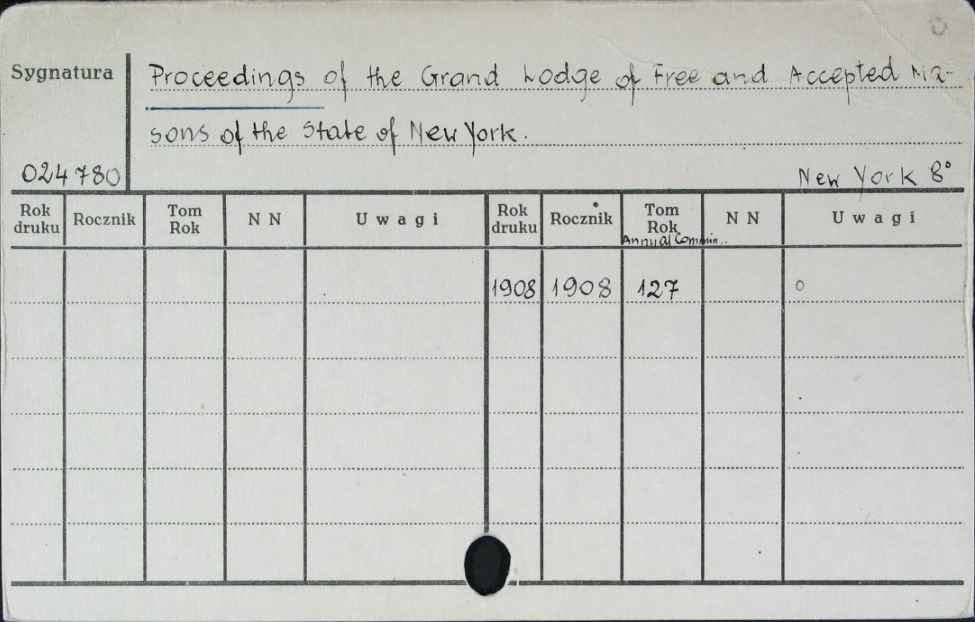 Sygnatura
Proceedings of the Grand Lodge of Free and Accepted Ma-
sons of the State of New York.
024780
New York 8°
Rok druku Rocznik Tom Rok N N Uwagi Rok druku Rocznik Tom Rok N N Uwagi
Annual Commun..
1908 1908 127 o